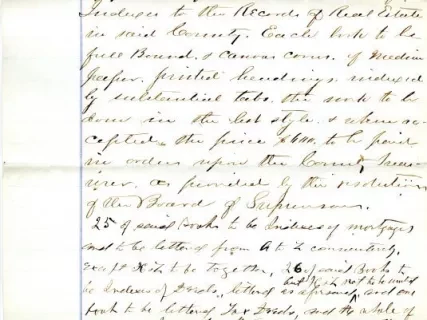 Indexes to the Records of Real Estate
in said County. Each book to be
full Bound, & canvas cover. of medium
paper, printed headings, indexed
by substantial tabs. the work to be
done in the best style. & when ac-
cepted the price to be paid
in orders upon the County Treas-
urer. as provided by the resolution
of the Board of Supervisors.
25 of said Books to be Indexes of mortgages
and to be lettered from A to Z consecutively,
except X & to be together, 26 of said Books to
be Indexes of Deeds, lettered as aforesaid, and one
but not to be
book to be lettered Tax Deeds, and the whole of